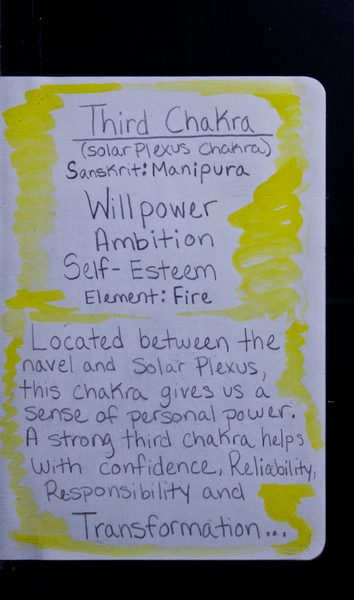 Third Chakra
(Solar Plexus Chakra)
Sanskrit: Manipura
Willpower
Ambition
Self-Esteem
Element: Fire
Located between the
navel and Solar Plexus,
this chakra gives us a
sense of personal power.
A strong third chakra helps
with confidence, Reliability,
Responsibility and
Transformation...